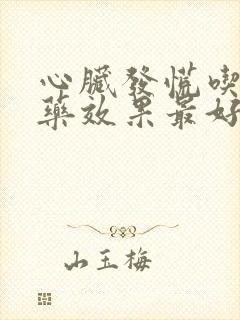 心臟發慌喫
藥效果最好
山玉梅